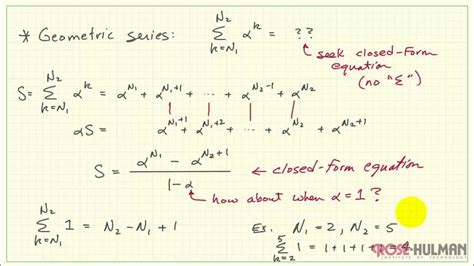 * Geometric series: ∑_{k=N₁}^{N₂} α^k = ??
seek closed-form equation (no "Σ")
S = ∑_{k=N₁}^{N₂} α^k = α^{N₁} + α^{N₁+1} + ··· + α^{N₂-1} + α^{N₂}
αS = α^{N₁+1} + α^{N₁+2} + ··· + α^{N₂} + α^{N₂+1}
S = (α^{N₁} - α^{N₂+1}) / (1-α) ← closed-form equation
how about when α=1?
∑_{k=N₁}^{N₂} 1 = N₂-N₁+1
Ex: N₁=2, N₂=5
∑_{k=2}^{5} 1 = 1+1+1+1=4
ROSE-HULMAN
INSTITUTE OF TECHNOLOGY